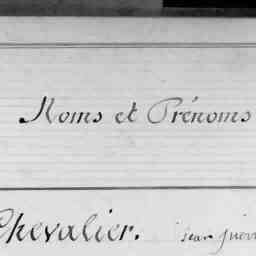 Noms et Prénoms
Chevalier. Jean